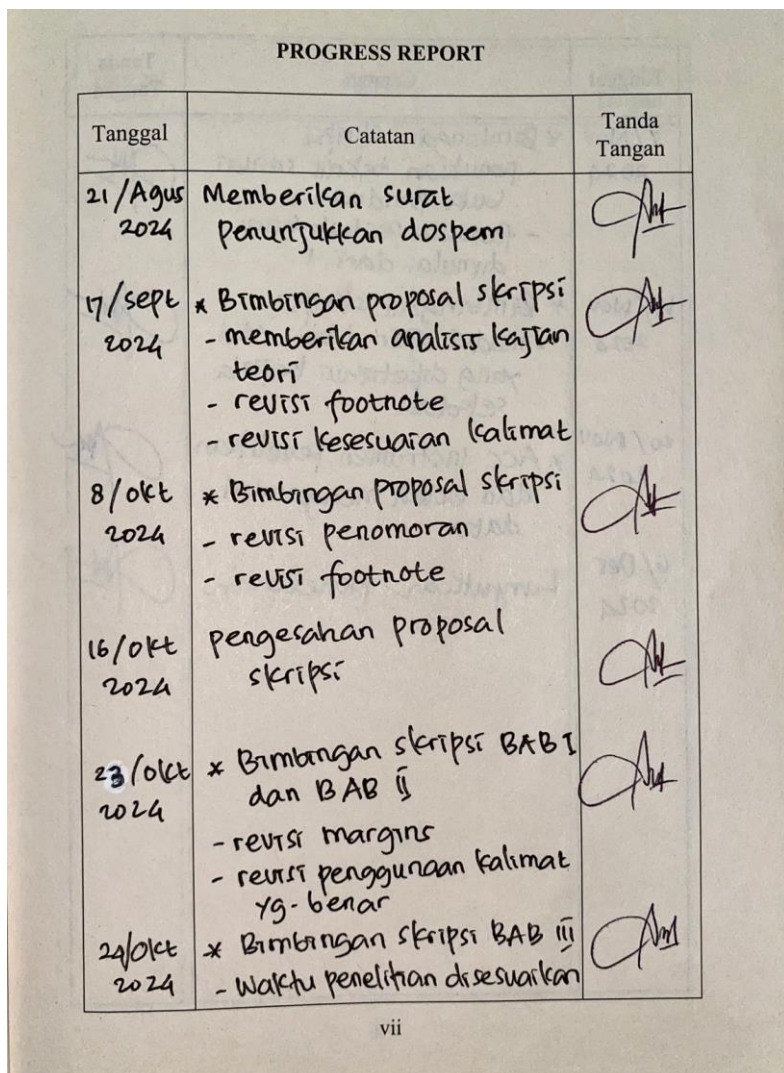 PROGRESS REPORT
Tanggal Catatan Tanda Tangan
21/Agus Memberikan surat
2024 Penunjukkan dospem
17/sept * Bimbingan proposal skripsi
2024 - memberikan analisis kajian
teori
- revisi footnote
- revisi kesesuaian kalimat
8/okt * Bimbingan proposal skripsi
2024 - revisi penomoran
- revisi footnote
16/okt pengesahan proposal
2024 skripsi
23/okt * Bimbingan skripsi BAB I
2024 dan BAB II
- revisi margins
- revisi penggunaan kalimat
yg-benar
24/okt * Bimbingan skripsi BAB III
2024 - Waktu penelitian disesuaikan
vii